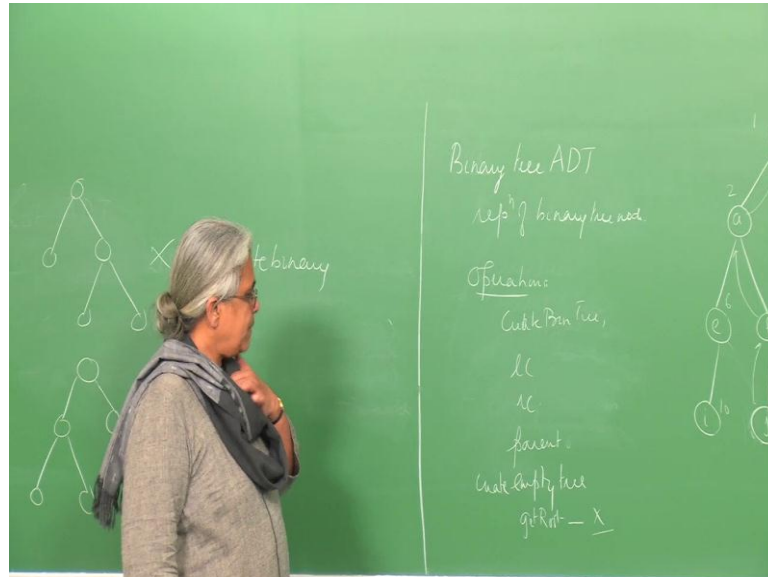 X
te binary
Binary tree ADT
repⁿ of binary tree nod
Operations
Create Bin Tree,
lc
rc
parent.
Create empty tree
getRoot — X
1
2
a
6
e
10